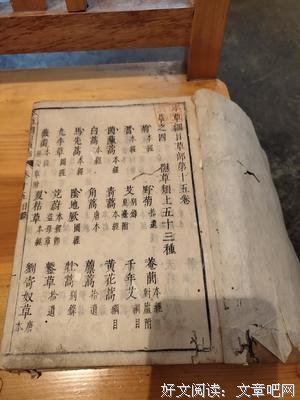 本草綱目草部第十五卷
草之四　隰草類上五十三種
菊本經　野菊拾遺　菴䕡本經　對廬附
蓍本經　艾別錄　千年艾綱目
茵蔯蒿本經　青蒿本經　黃花蒿綱目
白蒿本經　角蒿唐本　藘蒿拾遺
馬先蒿本經　陰地厥圖經　牡蒿別錄
九牛草圖經　茺蔚本經　鏨菜拾遺
薇銜本經
夏枯草本經　劉寄奴草唐本
好文阅读：文章吧网